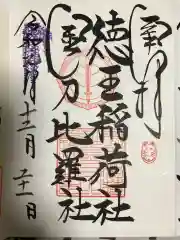 奉拝
徳王稲荷社
金刀比羅社
令和 年十二月二十一日